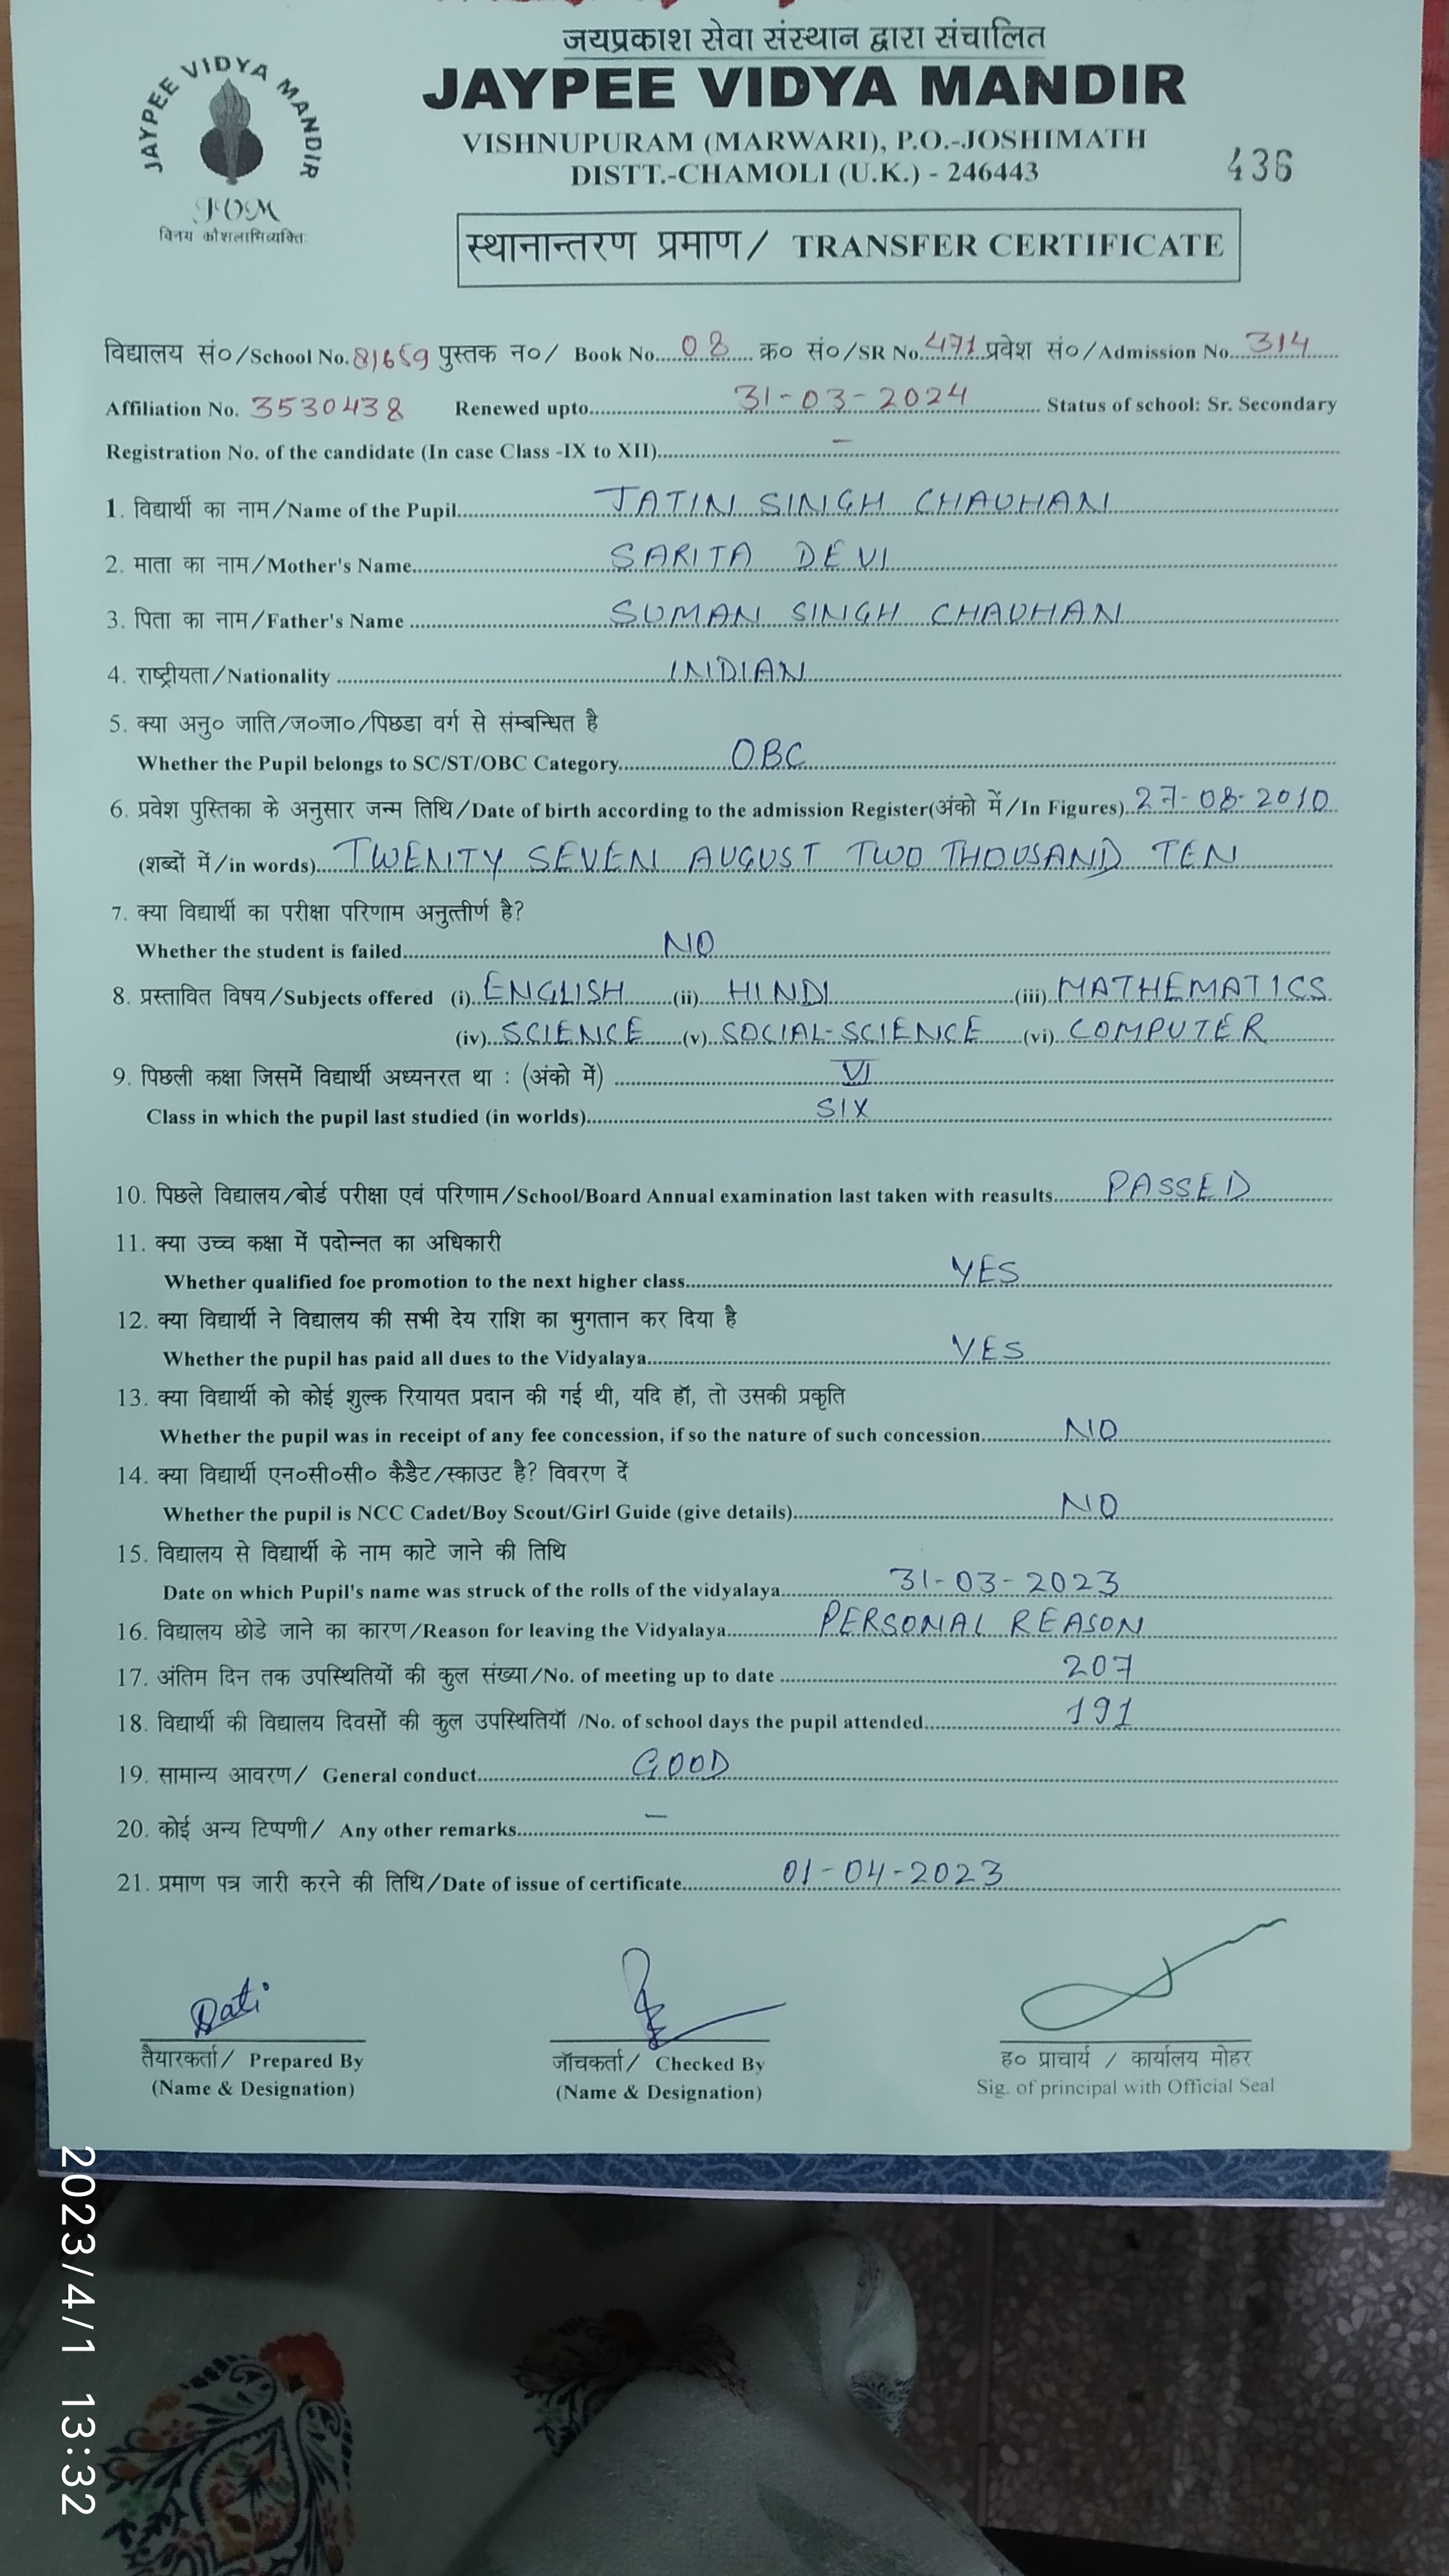 जयप्रकाश सेवा संस्थान द्वारा संचालित
JAYPEE VIDYA MANDIR
JAYPEE VIDYA MANDIR
VISHNUPURAM (MARWARI), P.O.-JOSHIMATH
DISTT.-CHAMOLI (U.K.) - 246443
436
विनय कौशलाभिव्यक्तिः
स्थानान्तरण प्रमाण/ TRANSFER CERTIFICATE
विद्यालय सं०/School No. 81659 पुस्तक न०/ Book No. 08 क्र० सं०/SR No. 471 प्रवेश सं०/Admission No. 314
Affiliation No. 3530438 Renewed upto 31-03-2024 Status of school: Sr. Secondary
Registration No. of the candidate (In case Class -IX to XII) –
1. विद्यार्थी का नाम/Name of the Pupil JATIN SINGH CHAUHAN
2. माता का नाम/Mother's Name SARITA DEVI
3. पिता का नाम/Father's Name SUMAN SINGH CHAUHAN
4. राष्ट्रीयता/Nationality INDIAN
5. क्या अनु० जाति/ज०जा०/पिछडा वर्ग से संम्बन्धित है
Whether the Pupil belongs to SC/ST/OBC Category OBC
6. प्रवेश पुस्तिका के अनुसार जन्म तिथि/Date of birth according to the admission Register(अंको में/In Figures) 27-08-2010
(शब्दों में/in words) TWENTY SEVEN AUGUST TWO THOUSAND TEN
7. क्या विद्यार्थी का परीक्षा परिणाम अनुत्तीर्ण है?
Whether the student is failed NO
8. प्रस्तावित विषय/Subjects offered (i) ENGLISH (ii) HINDI (iii) MATHEMATICS
(iv) SCIENCE (v) SOCIAL-SCIENCE (vi) COMPUTER
9. पिछली कक्षा जिसमें विद्यार्थी अध्यनरत था : (अंको में) VI
Class in which the pupil last studied (in worlds) SIX
10. पिछले विद्यालय/बोर्ड परीक्षा एवं परिणाम/School/Board Annual examination last taken with reasults PASSED
11. क्या उच्च कक्षा में पदोन्नत का अधिकारी
Whether qualified foe promotion to the next higher class YES
12. क्या विद्यार्थी ने विद्यालय की सभी देय राशि का भुगतान कर दिया है
Whether the pupil has paid all dues to the Vidyalaya YES
13. क्या विद्यार्थी को कोई शुल्क रियायत प्रदान की गई थी, यदि हॉ, तो उसकी प्रकृति
Whether the pupil was in receipt of any fee concession, if so the nature of such concession NO
14. क्या विद्यार्थी एन०सी०सी० कैडैट/स्काउट है? विवरण दें
Whether the pupil is NCC Cadet/Boy Scout/Girl Guide (give details) NO
15. विद्यालय से विद्यार्थी के नाम काटे जाने की तिथि
Date on which Pupil's name was struck of the rolls of the vidyalaya 31-03-2023
16. विद्यालय छोडे जाने का कारण/Reason for leaving the Vidyalaya PERSONAL REASON
17. अंतिम दिन तक उपस्थितियों की कुल संख्या/No. of meeting up to date 207
18. विद्यार्थी की विद्यालय दिवसों की कुल उपस्थितियॉ /No. of school days the pupil attended 191
19. सामान्य आवरण/ General conduct GOOD
20. कोई अन्य टिप्पणी/ Any other remarks –
21. प्रमाण पत्र जारी करने की तिथि/Date of issue of certificate 01-04-2023
तैयारकर्ता/ Prepared By जॉचकर्ता/ Checked By ह० प्राचार्य / कार्यालय मोहर
(Name & Designation) (Name & Designation) Sig. of principal with Official Seal
2023/4/1 13:32